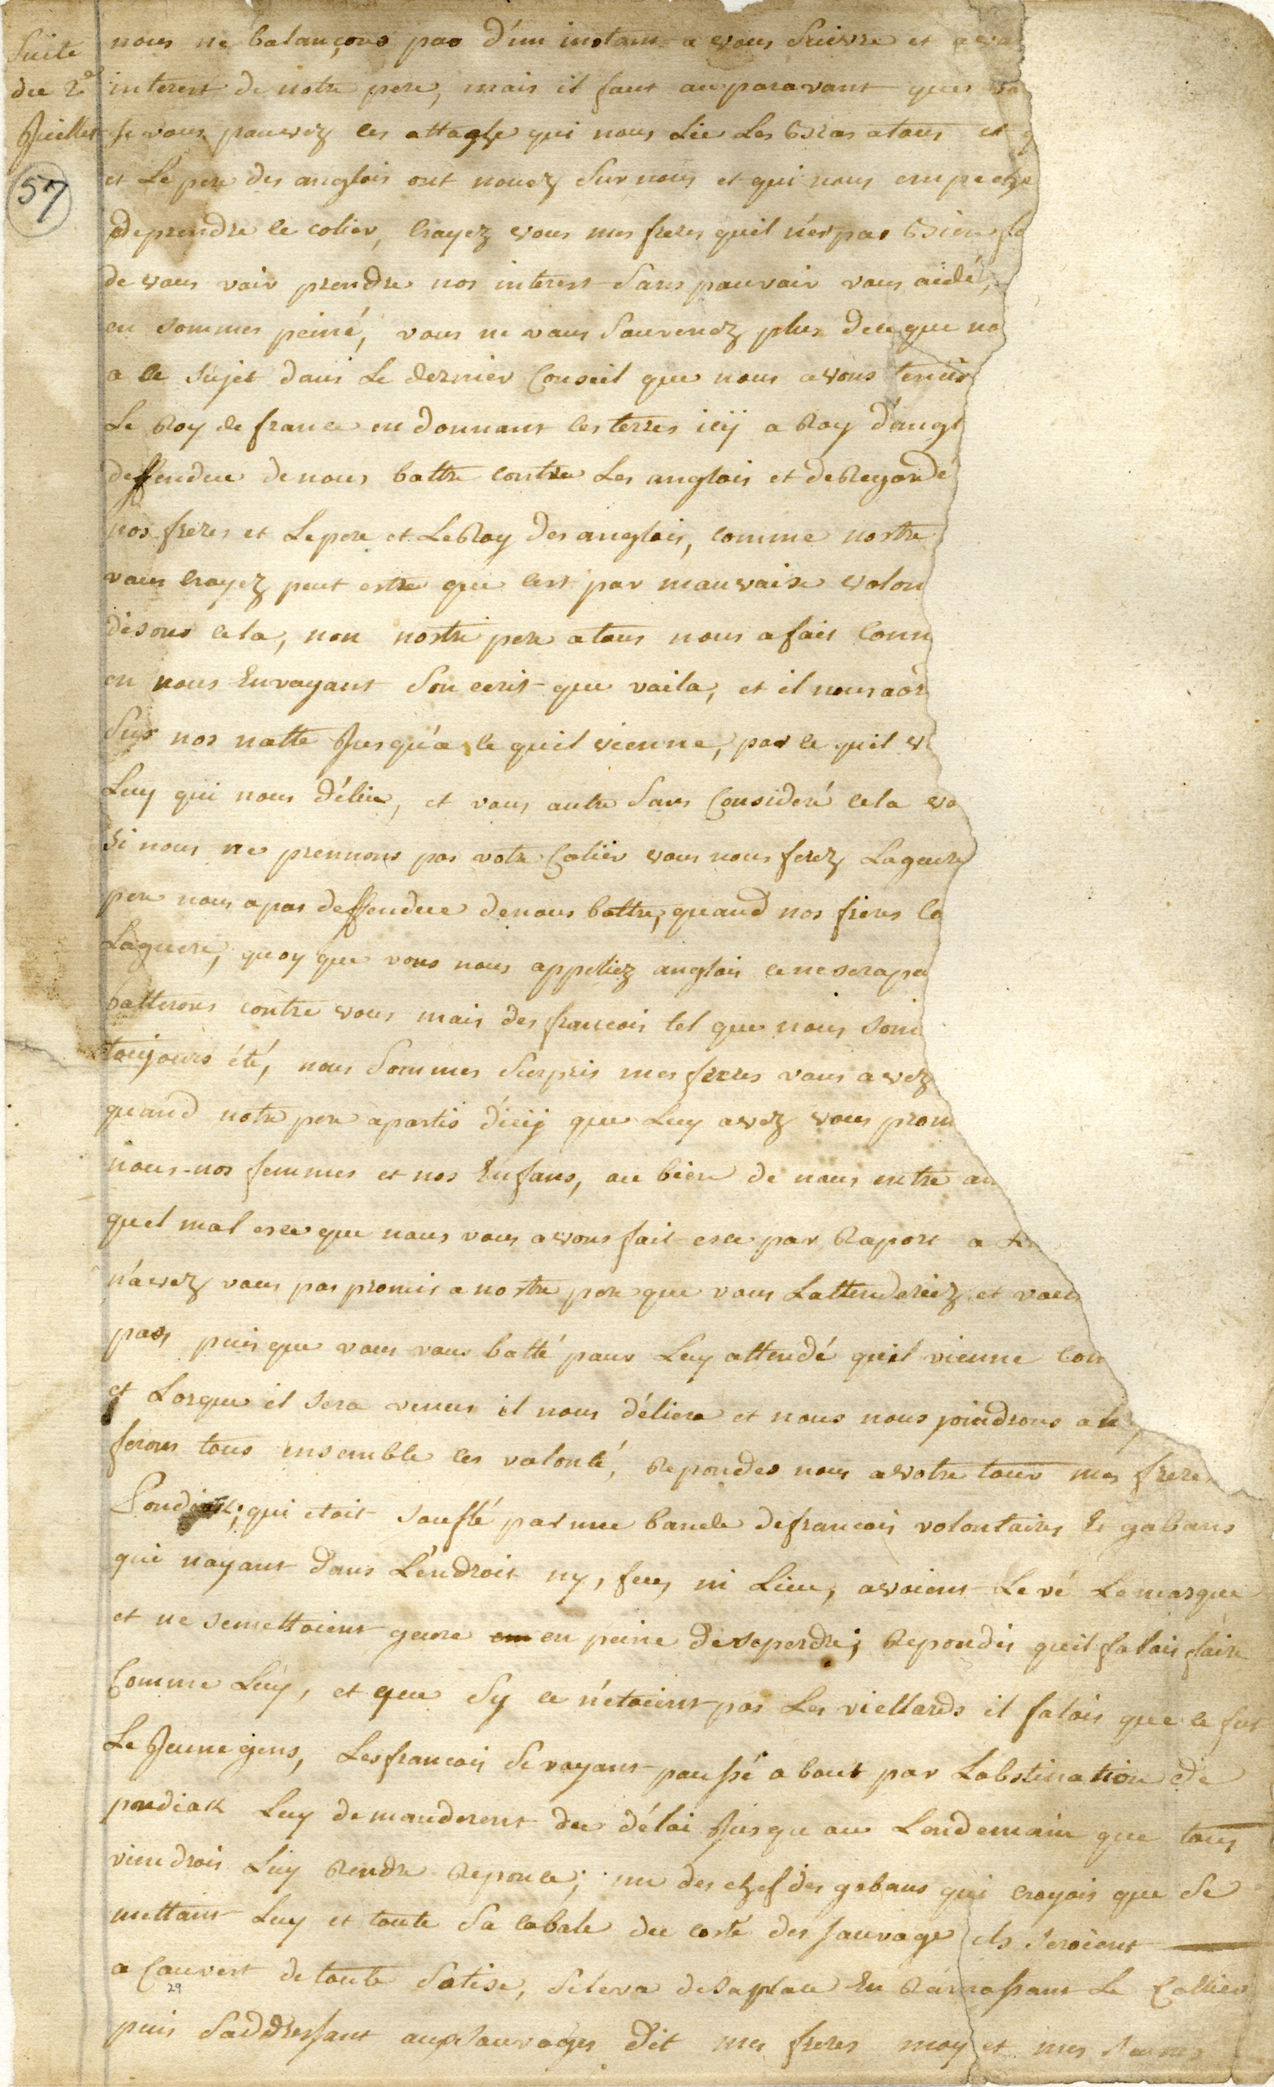 Suitte
du 2e
Juillet
57
nous ne balançons pas d'un instant a vous Suivre et a
interest de notre pere, mais il faut auparavant que
Si vous pouvez les attache qui nous Lie Les bras atous et
et Le pere des anglois ont nouez Sur nous et qui nous empeche
deprendre le colier, Croyez vous mes freres quil n'est pas bien
de vous voir prendre nos interest Sans pouvoir vous aidé,
en sommes peiné, vous ne vous Souvenez plus dece que no
a ce sujet dans Le dernier Conseil que nous avons tenus
Le Roy de france en donnant les terres icÿ a Roy d'angl
deffendue de nous battre contre Les anglois et deRegardé
nos freres et Lepere et LeRoy des anglois, comme nostre
vous croyez peut estre que cest par mauvaise volon
disons cela, non nostre pere atous nous a fait Conn
en nous Envoyant Son ecrit que voila, et il nous a or
Sur nos natte Jusqu'a ce quil vienne, par ce quil
Luy qui nous délie, et vous autre Sans Consideré cela vo
Si nous ne prennons pas votre Colier vous nous ferez Laguer
pere nous apas deffendue denous battre, quand nos freres
Laguere, quoy que vous nous appeliez anglois ce ne sera pa
batterons contre vous mais des francois tel que nous som
toujours été, nous Sommes Surpris mes freres vous avez
quand notre pere apartis d'icÿ que Luy avez vous prom
nous nos femmes et nos Enfans, ou bien de nous mettre au
quel mal esce que nous vous avons fait esce par Raport a
n'avez vous pas promis a nostre pere que vous Lattenderiez et vous
pas, puis que vous vous batté pour Luy attendé quil vienne com
et Lorque il sera venus il nous déliera et nous nous joindrons a
ferons tous ensemble ces volonté, Repondes nous avotre tour mes frere
Pondiak; qui etoit souflé par une bande defrancois volontaires Es gabans
qui nayant dans L'endroit ny, feu, ni Lieu, avoient Levé Le masque
et ne semettoient guere en peine de Seperdre; Repondis quil falois faire
Comme Luy, et que Sy ce n'etoient pas Les viellards il falois que ce fut
Le Jeune gens, Les francois Se voyant poussé a bout par Lobstination de
pondiak Luy demanderent du délai Jusqu au Lendemain que tous
viendrois Luy Rendre Reponce; un des chef des gabans qui croyois que Se
mettant Luy et toute Sa Cabale du costé des Sauvage ils seroient
a Couvert de toute Sotise, Seleva desaplace En Ramassant Le Collier
29
puis Saddressant aux Sauvages dit mes freres moy et mes